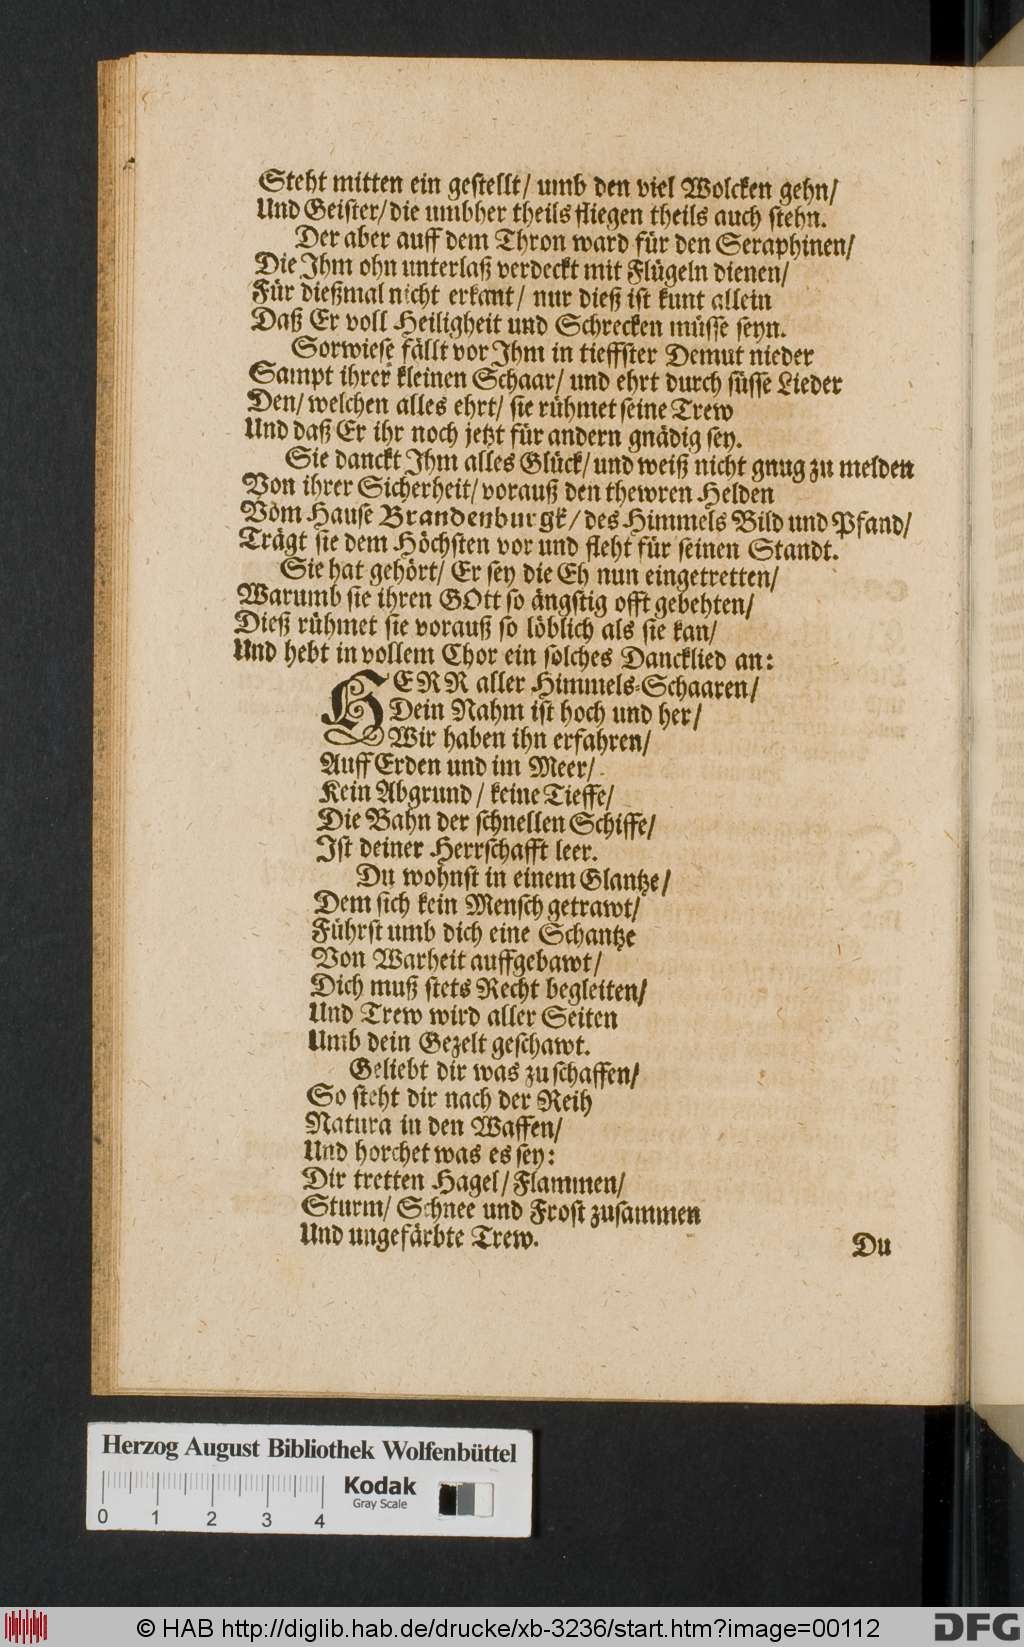 Steht mitten ein gestellt/ umb den viel Wolcken gehn/
Und Geister/ die umbher theils fliegen theils auch stehn.
Der aber auff dem Thron ward für den Seraphinen/
Die Ihm ohn unterlaß verdeckt mit Flügeln dienen/
Für dießmal nicht erkant/ nur dieß ist kunt allein
Daß Er voll Heiligheit und Schrecken müsse seyn.
Sorwiese fällt vor Ihm in tieffster Demut nieder
Sampt ihrer kleinen Schaar/ und ehrt durch süsse Lieder
Den/ welchen alles ehrt/ sie rühmet seine Trew
Und daß Er ihr noch jetzt für andern gnädig sey.
Sie danckt Ihm alles Glück/ und weiß nicht gnug zu melden
Von ihrer Sicherheit/ vorauß den thewren Helden
Vom Hause Brandenburgk/ des Himmels Bild und Pfand/
Trägt sie dem Höchsten vor und fleht für seinen Standt.
Sie hat gehört/ Er sey die Eh nun eingetretten/
Warumb sie ihren GOtt so ängstig offt gebehten/
Dieß rühmet sie vorauß so löblich als sie kan/
Und hebt in vollem Chor ein solches Dancklied an:
HERR aller Himmels-Schaaren/
Dein Nahm ist hoch und her/
Wir haben ihn erfahren/
Auff Erden und im Meer/
Kein Abgrund/ keine Tieffe/
Die Bahn der schnellen Schiffe/
Ist deiner Herrschafft leer.
Du wohnst in einem Glantze/
Dem sich kein Mensch getrawt/
Führst umb dich eine Schantze
Von Warheit auffgebawt/
Dich muß stets Recht begleiten/
Und Trew wird aller Seiten
Umb dein Gezelt geschawt.
Geliebt dir was zu schaffen/
So steht dir nach der Reih
Natura in den Waffen/
Und horchet was es sey:
Dir tretten Hagel/ Flammen/
Sturm/ Schnee und Frost zusammen
Und ungefärbte Trew.
Du
Herzog August Bibliothek Wolfenbüttel
Kodak
Gray Scale
0 1 2 3 4
© HAB http://diglib.hab.de/drucke/xb-3236/start.htm?image=00112
DFG